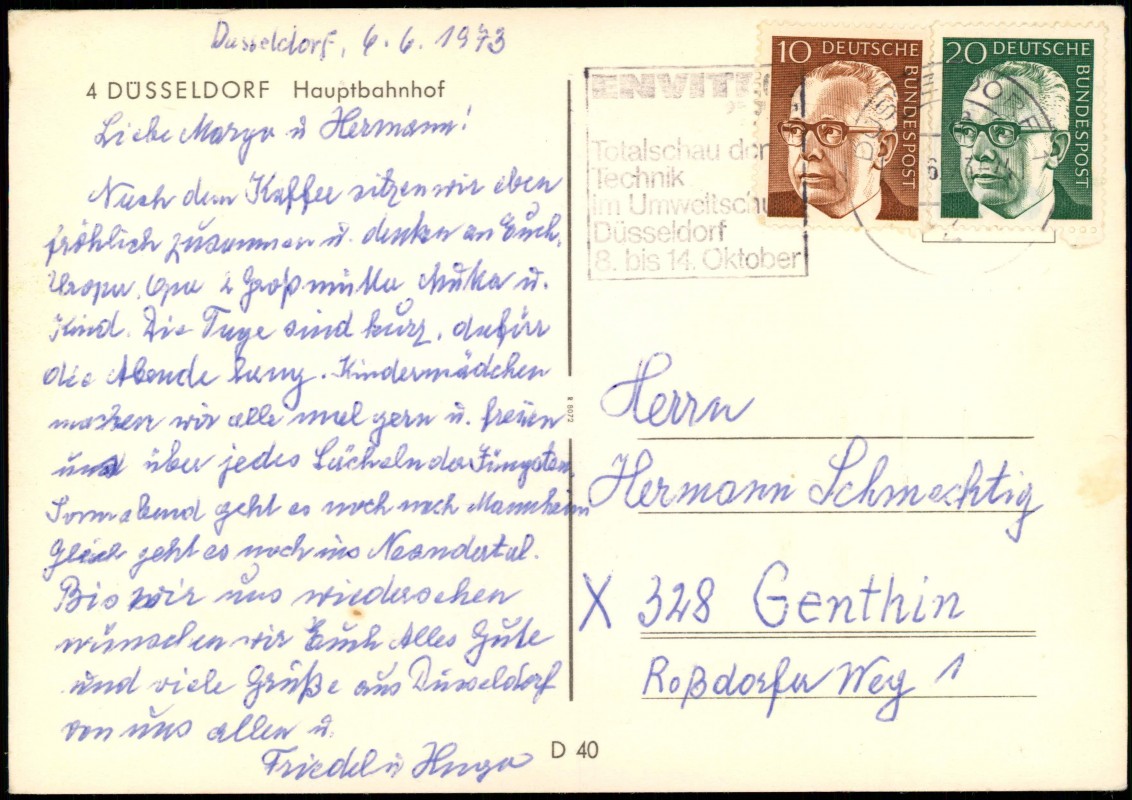 Düsseldorf, 6. 6. 1973
4 DÜSSELDORF Hauptbahnhof
Liebe Margo u Hermann!
Nach dem Kaffee sitzen wir eben
fröhlich zusammen u. denken an Euch.
Uropa, Opa 2 Großmütter Muka u.
Kind. Die Tage sind kurz, dafür
die Abende lang. Kindermädchen
machen wir alle mal gern u. freuen
uns über jedes Lächeln der Jüngsten.
Sonnabend geht es noch nach Mannheim
Gleich geht es noch ins Neandertal.
Bis wir uns wiedersehen
wünschen wir Euch Alles Gute
und viele Grüße aus Düsseldorf
von uns allen u.
Friedel u Hugo
R 8072
D 40
ENVITEC
Totalschau der
Technik
im Umweltschu
Düsseldorf
8. bis 14. Oktober
10 DEUTSCHE
BUNDESPOST
20 DEUTSCHE
BUNDESPOST
Herrn
Hermann Schmechtig
X 328 Genthin
Roßdorfer Weg 1